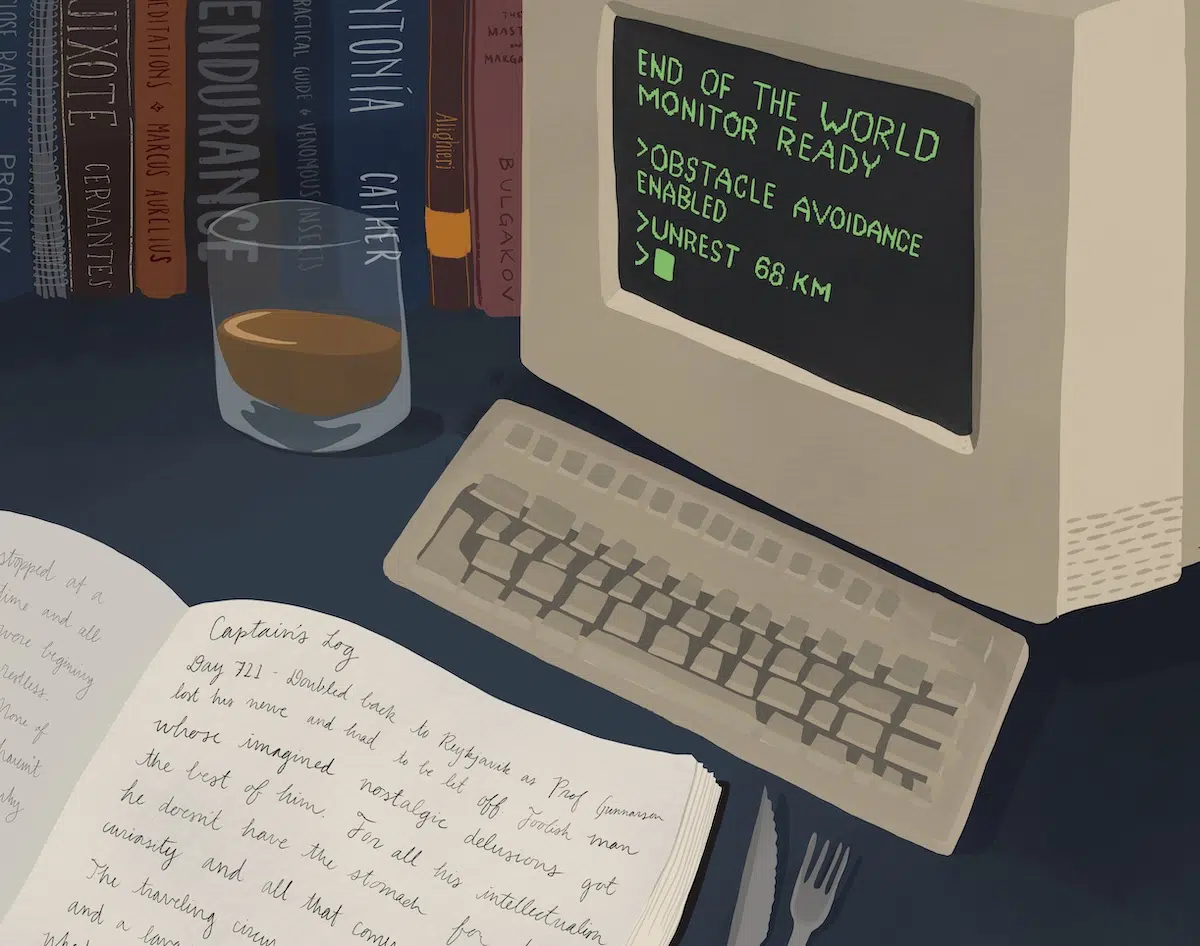 CLOSE RANGE PROULX
QUIXOTE CERVANTES
MEDITATIONS MARCUS AURELIUS
ENDURANCE
PRACTICAL GUIDE VENOMOUS INSECTS
CATHER
Alighieri
THE
MAST
AND
MARGA
BULGAKOV
END OF THE WORLD
MONITOR READY
>OBSTACLE AVOIDANCE
ENABLED
>UNREST 68.KM
>
stopped at a
time and all
were beginning
restless.
None of
haven't
why
Captain's Log
Day 721 - Doubled back to Reykjavik as Prof Gunnarsen
lost his nerve and had to be let off. Foolish man
whose imagined nostalgic delusions got
the best of him. For all his intellectualism
he doesn't have the stomach for
curiosity and all that comes
The traveling circus
and a